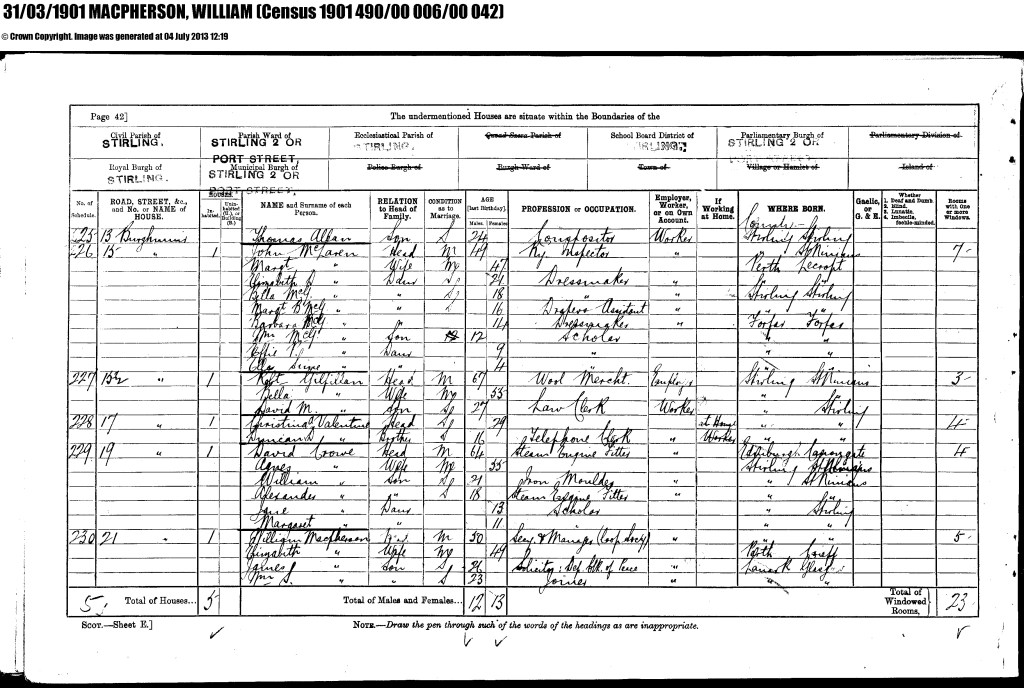 31/03/1901 MACPHERSON, WILLIAM (Census 1901 490/00 006/00 042)
© Crown Copyright. Image was generated at 04 July 2013 12:19
Page 42] The undermentioned Houses are situate within the Boundaries of the
Civil Parish of STIRLING. Parish Ward of STIRLING 2 OR PORT STREET, Ecclesiastical Parish of STIRLING. Quoad Sacra Parish of School Board District of STIRLING. Parliamentary Burgh of STIRLING 2 OR PORT STREET, Parliamentary Division of
Royal Burgh of STIRLING. Municipal Burgh of STIRLING 2 OR PORT STREET. Police Burgh of Burgh Ward of Town of Village or Hamlet of Island of
No. of Schedule. ROAD, STREET, &c., and No. or NAME of HOUSE. HOUSES. Inhabited. Uninhabited (U.), or Building (B.) NAME and Surname of each Person. RELATION to Head of Family. CONDITION as to Marriage. AGE [last Birthday]. Males. Females. PROFESSION or OCCUPATION. Employer, Worker, or on Own Account. If Working at Home. WHERE BORN. Gaelic, or G. & E. Whether 1. Deaf and Dumb 2. Blind. 3. Lunatic. 4. Imbecile, feeble-minded. Rooms with One or more Windows.
225 13 Thomas Allan Son S 24 Compositor Worker Stirling Stirling
226 15 " 1 John McLaren Head M 49 Ry. Inspector " " St Ninians 7
Margt " Wife M 47 Perth Lecropt
Elizabeth " Daur S 24 Dressmaker " "
Bella McG " " S 18 " " Stirling Stirling
Margt B McG " " S 16 Drapers Assistant " " "
Barbara McG " " 14 Dressmaker " Forfar Forfar
Wm McG " Son 12 Scholar " "
Effie " Daur 9 " " "
" " 4 " "
227 " 1 Robt Gilfillan Head M 67 Wool Mercht. Employr Stirling St Ninians 3
Bella " Wife M 55 " "
David M. " Son S 27 Law Clerk Worker " Stirling
228 17 " 1 Christina Valentine Head S 29 at Home " " 4
Duncan " Brother S 16 Telephone Clerk Worker " "
229 19 " 1 David Crowe Head M 64 Steam Engine Fitter " Edinburgh Canongate 4
Agnes " Wife M 55 Stirling St Ninians
William " Son S 21 Iron Moulder " " St Ninians
Alexander " " S 18 Steam Engine Fitter " " "
Jane " Daur 13 Scholar " Stirling
Margaret " " 11 " "
230 21 " 1 William Macpherson Head M 50 Secy & Manager (Coop Socty) " " " 5
Elizabeth " Wife M 49 Perth Crieff
James " Son S 26 Solicitor; Dep Clk of Peace " Lanark Glasg
Wm S. " " S 23 Joiner " " "
5 Total of Houses... 5 Total of Males and Females... 12 13 Total of Windowed Rooms, 23
SCOT.—Sheet E.] NOTE.—Draw the pen through such of the words of the headings as are inappropriate.